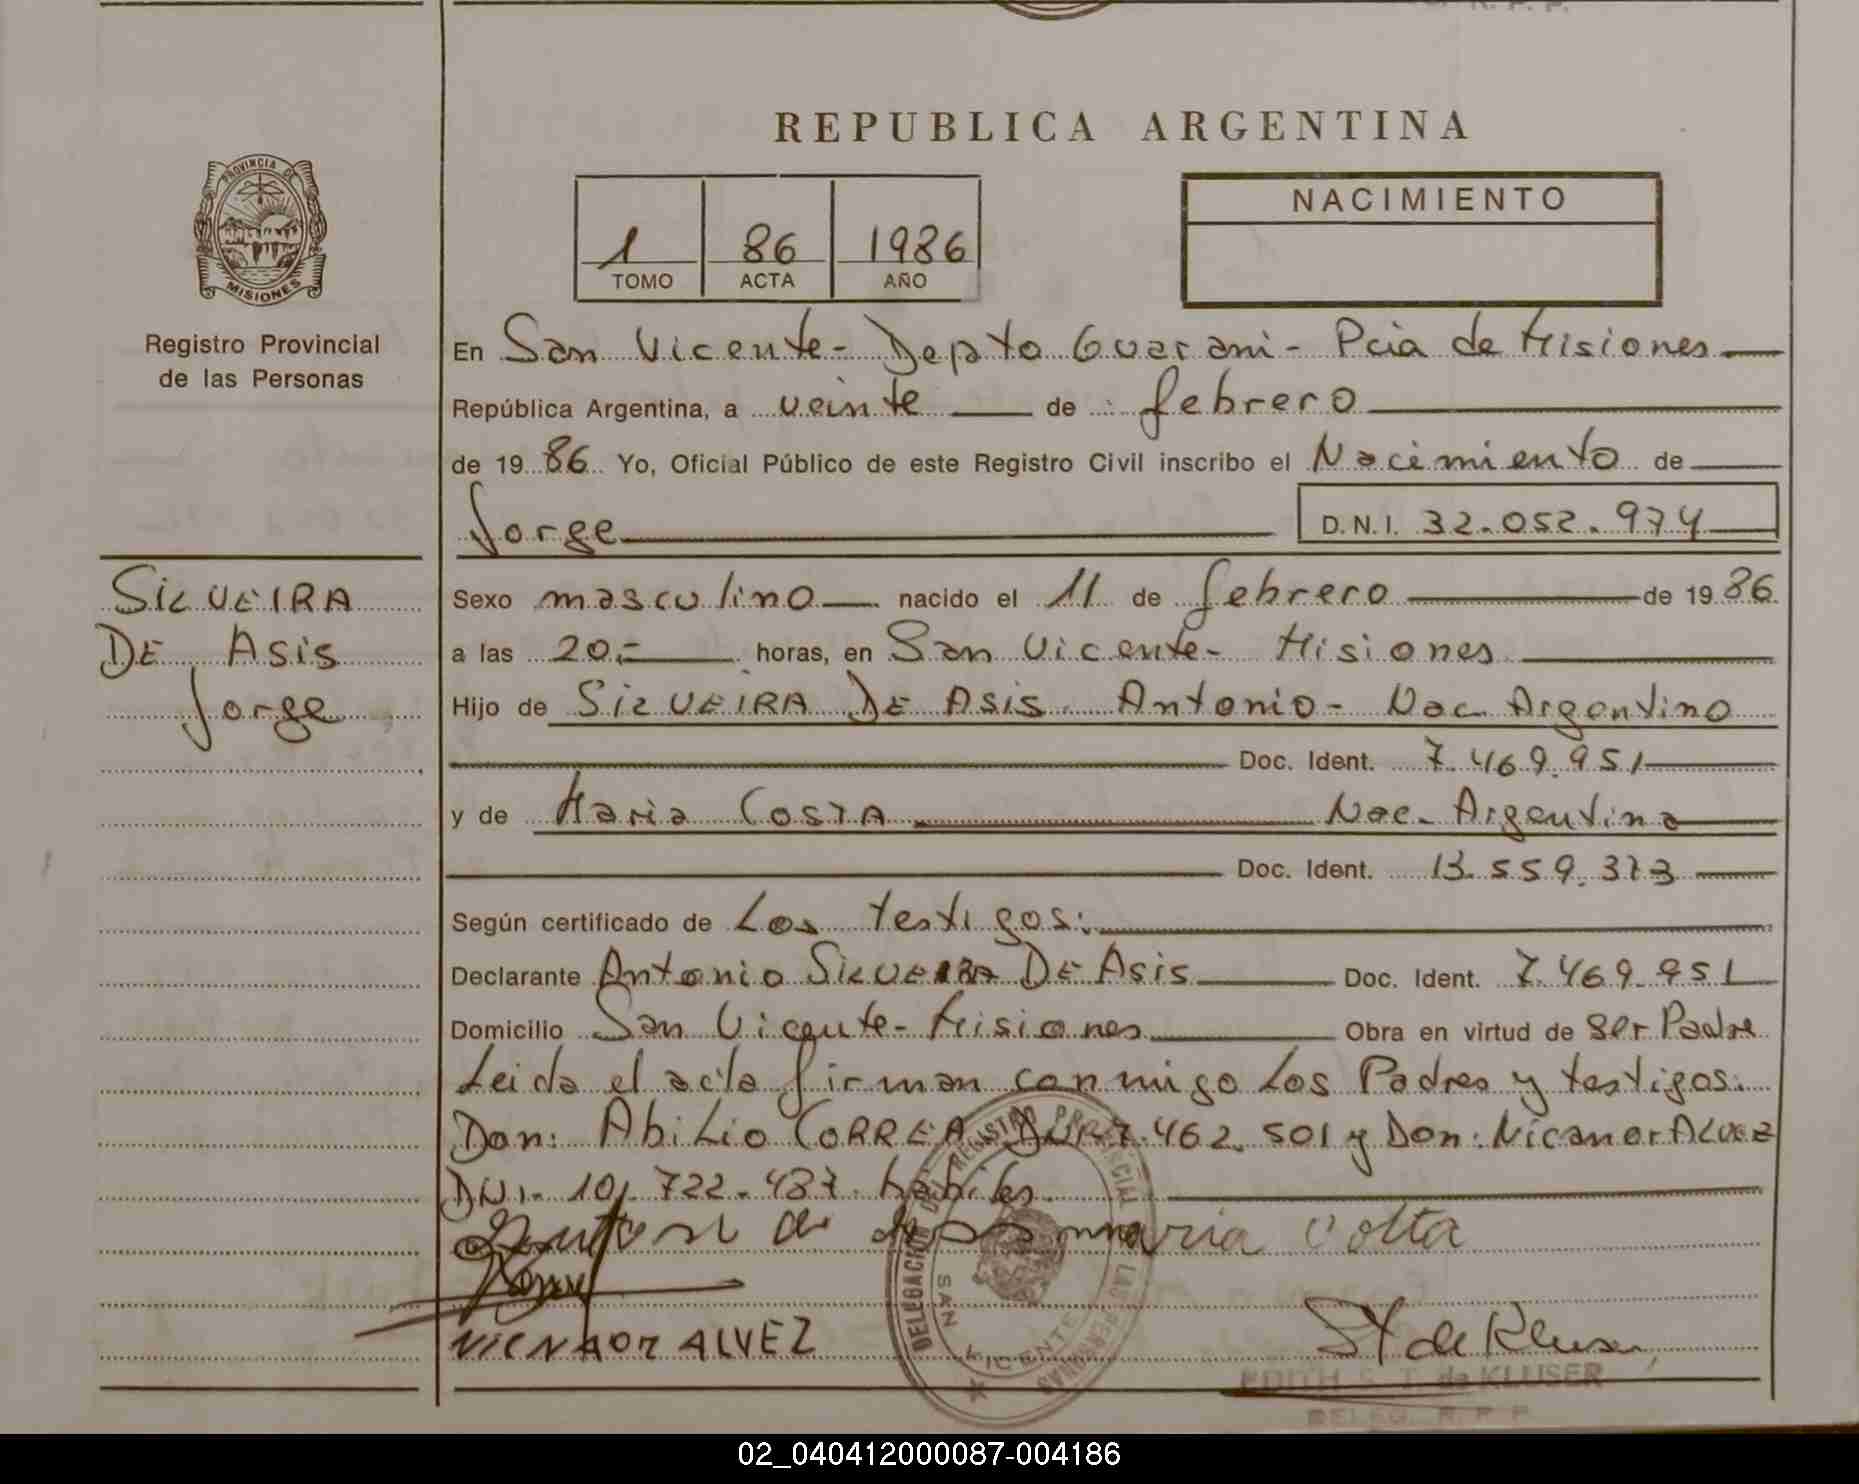 R. P. P.
REPUBLICA ARGENTINA
PROVINCIA DE
MISIONES
Registro Provincial
de las Personas
1 86 1986
TOMO ACTA AÑO
NACIMIENTO
En San Vicente - Depto Guarani - Pcia de Misiones
República Argentina, a veinte de febrero
de 1986 Yo, Oficial Público de este Registro Civil inscribo el Nacimiento de
Jorge D.N.I. 32.052.974
SILVEIRA
DE ASIS
Jorge
Sexo masculino nacido el 11 de febrero de 1986
a las 20.- horas, en San Vicente - Misiones
Hijo de SILVEIRA DE ASIS Antonio - Nac. Argentino
Doc. Ident. 7.469.951
y de Maria COSTA Nac. Argentina
Doc. Ident. 13.559.373
Según certificado de Los testigos:
Declarante Antonio SILVEIRA DE ASIS Doc. Ident. 7.469.951
Domicilio San Vicente - Misiones Obra en virtud de ser Padre
Leida el acta firman conmigo Los Padres y testigos:
Don: Abilio CORREA DNI 7.462.501 y Don: Nicanor ALVEZ
DNI. 10.722.487 habiles.
maria cotta
NICNAOR ALVEZ
DELEGACION DEL REGISTRO PROVINCIAL DE LAS PERSONAS
SAN VICENTE
ST de Kluser
EDITH S. T. de KLUSER
DELEG. R. P. P.
02_040412000087-004186